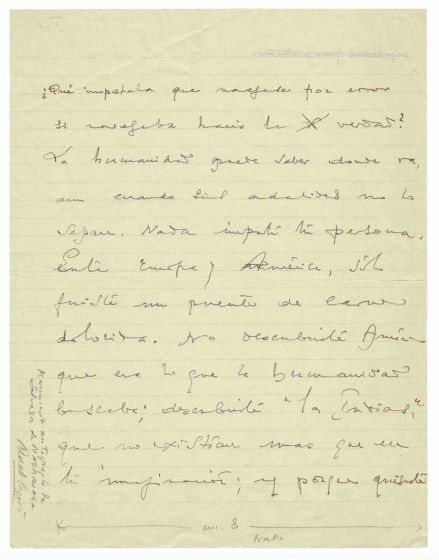 ¿Qué importaba que navegase por error
si navegaba hacia la verdad?
La humanidad puede saber donde va,
aun cuando sus adalides no lo
sepan. Nada importa tu persona.
Entre Europa y América, sólo
fuiste un puente de carne
dolorida. No descubriste América
que era lo que la humanidad
buscaba; descubriste "las Indias,"
que no existían mas que en
tu imaginación; y porque quisiste
Manuscrito autógrafo de
Salvador de Madariaga